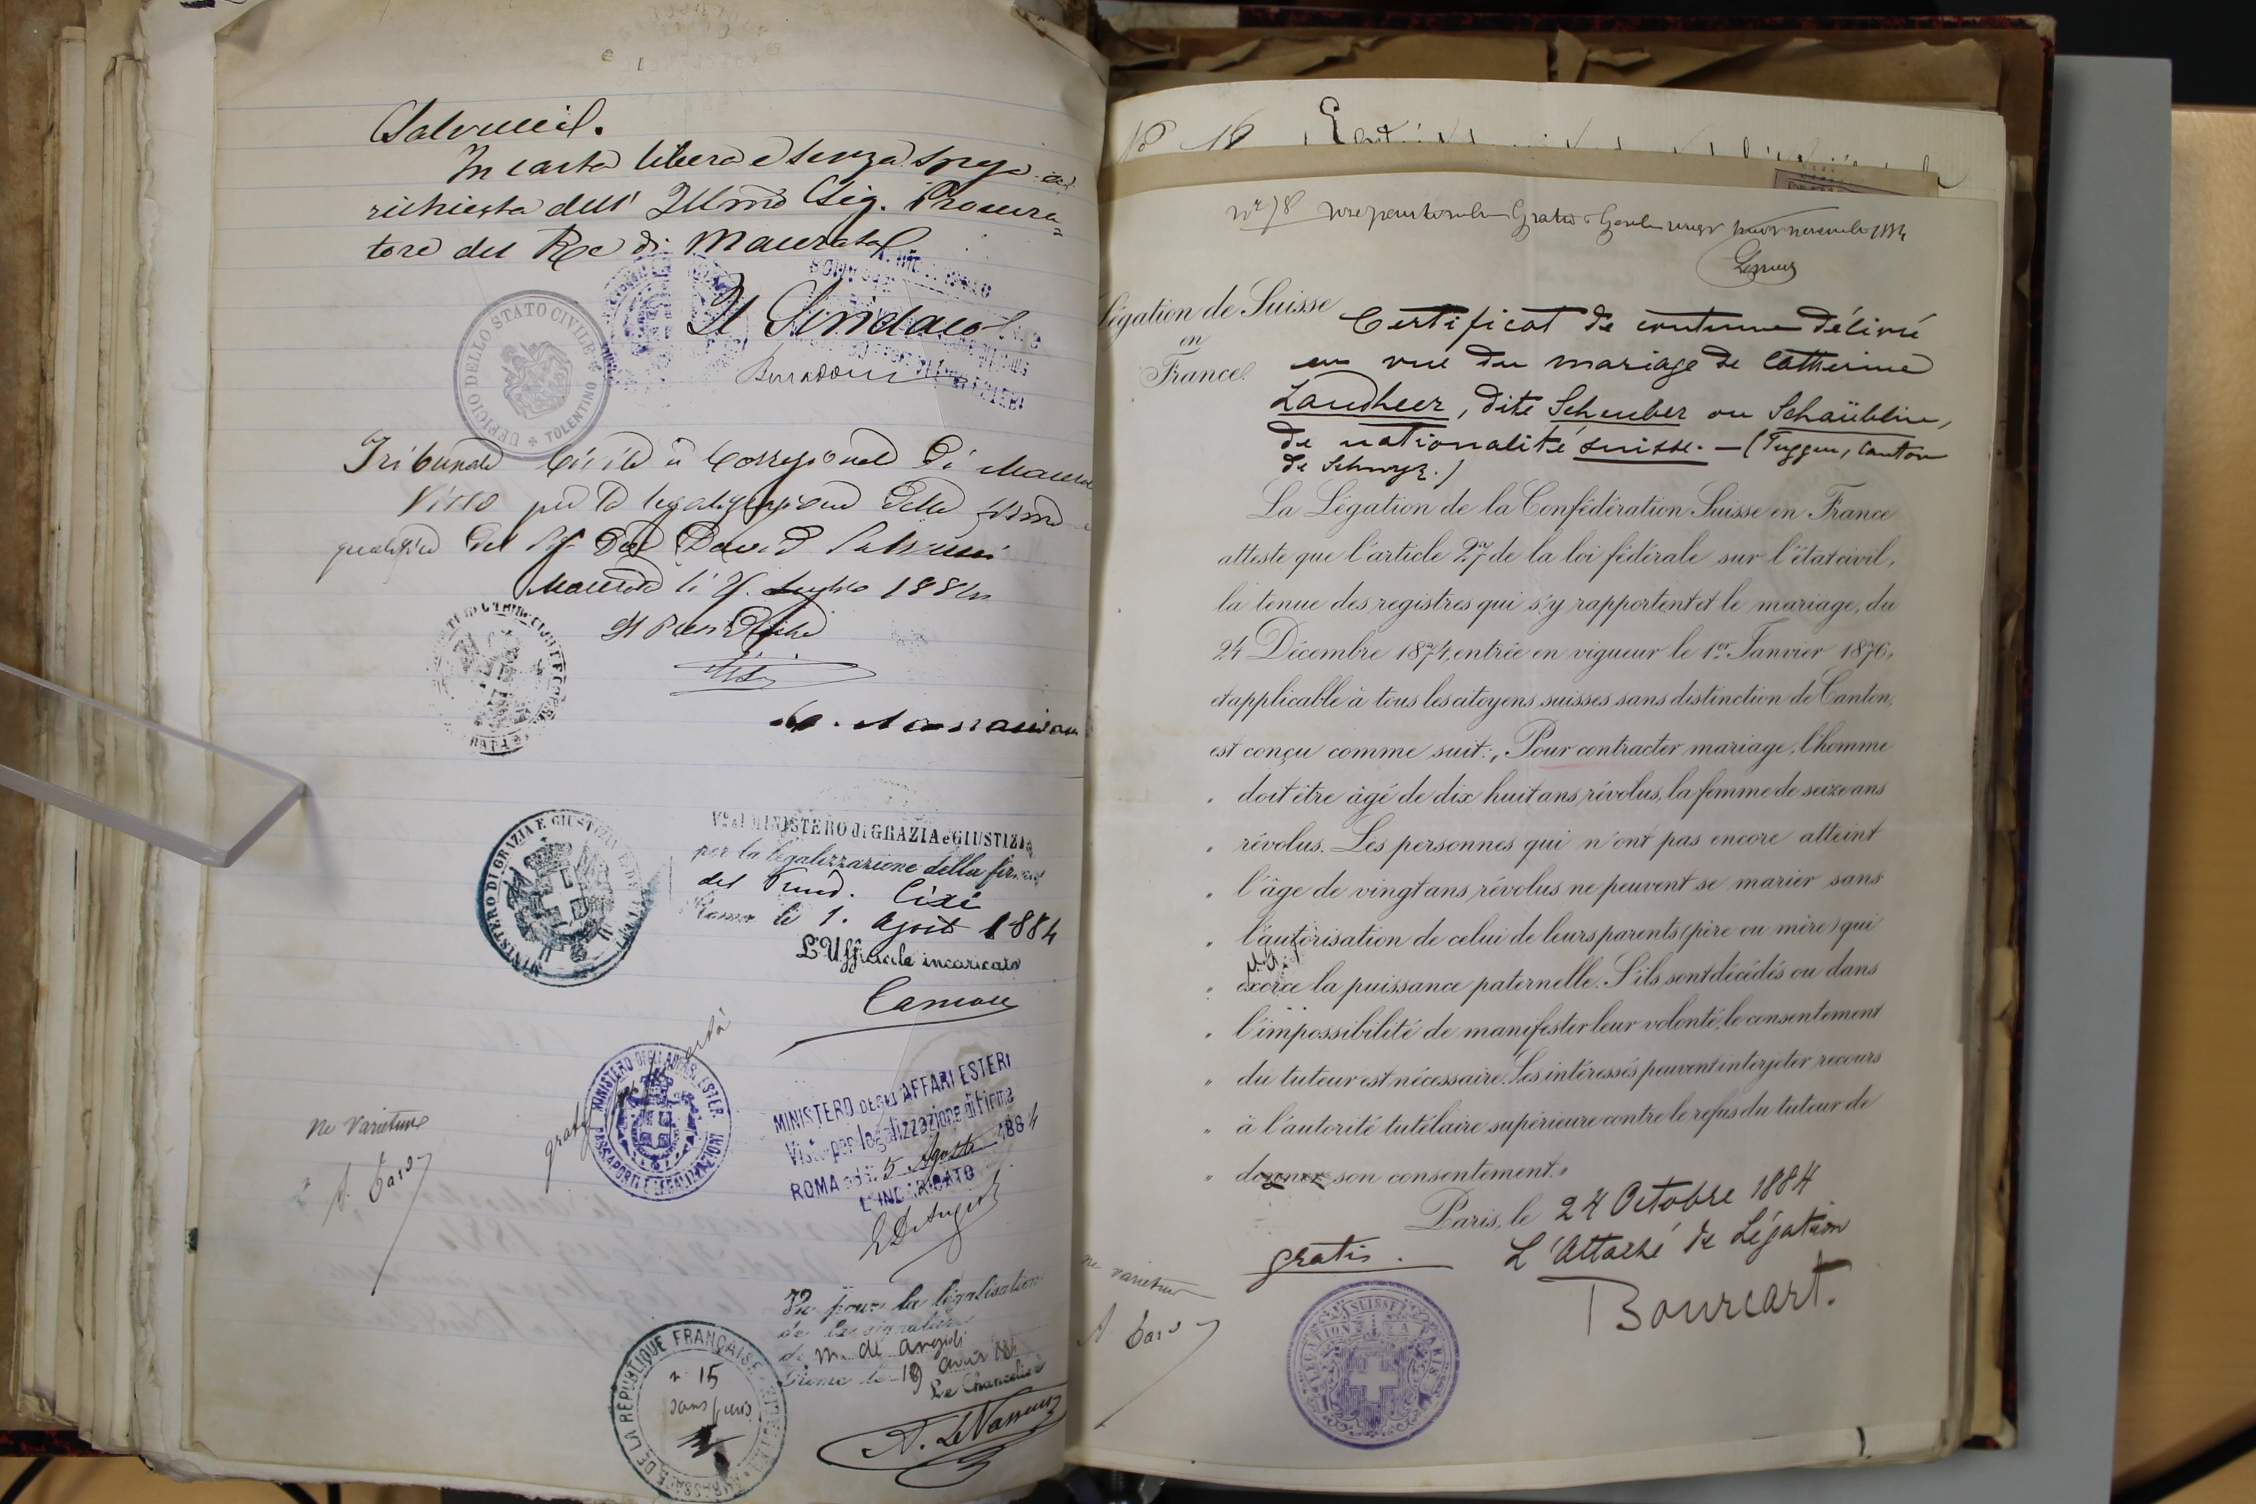 In carta libera e senza spesa a
richiesta dell' Illmo Sig. Procura=
tore del Re di Macerata
Il Sindaco
UFFICIO DELLO STATO CIVILE
TOLENTINO
Tribunale Civile e Correzionale di Macerata
Visto per la legalizzazione della firma
del David Salvucci
Macerata li Luglio 1884
Il Presidente
Vo al MINISTERO di GRAZIA e GIUSTIZIA
per la legalizzazione della firma
del
Roma li 1. Agosto 1884
L'Ufficiale incaricato
MINISTERO DI GRAZIA E GIUSTIZIA
gratis
MINISTERO DEGLI AFFARI ESTERI
PASSAPORTI E LEGALIZZAZIONI
MINISTERO DEGLI AFFARI ESTERI
Visto per legalizzazione di firma
ROMA addì 5 Agosto 1884
L'INCARICATO
E De Angeli
ne varietur
Vu pour la légalisation
de la signature
de M. de Angeli
Rome le 19 1884
Le Chancelier
A. Le Vasseur
DE LA RÉPUBLIQUE FRANÇAISE
n 15
sans frais
No 16
Légation de Suisse
en
France.
Certificat de coutume délivré
en vue du mariage de Catherine
Landheer, dite Scheuber ou Schaüblin,
de nationalité suisse. — (Tuggen, Canton
de Schwyz.)
La Légation de la Confédération Suisse en France
atteste que l'article 27 de la loi fédérale sur l'état civil,
la tenue des registres qui s'y rapportent et le mariage, du
24 Décembre 1874, entrée en vigueur le 1er Janvier 1876,
et applicable à tous les citoyens suisses sans distinction de Canton,
est conçu comme suit: „Pour contracter mariage, l'homme
„ doit être âgé de dix huit ans révolus, la femme de seize ans
„ révolus. Les personnes qui n'ont pas encore atteint
„ l'âge de vingt ans révolus ne peuvent se marier sans
„ l'autorisation de celui de leurs parents (père ou mère) qui
„ exerce la puissance paternelle. S'ils sont décédés ou dans
„ l'impossibilité de manifester leur volonté, le consentement
„ du tuteur est nécessaire. Les intéressés peuvent interjeter recours
„ à l'autorité tutélaire supérieure contre le refus du tuteur de
„ donner son consentement."
Paris, le 24 Octobre 1884
gratis.
L'Attaché de Légation
Bourcart.
ne varietur
LÉGATION SUISSE À PARIS